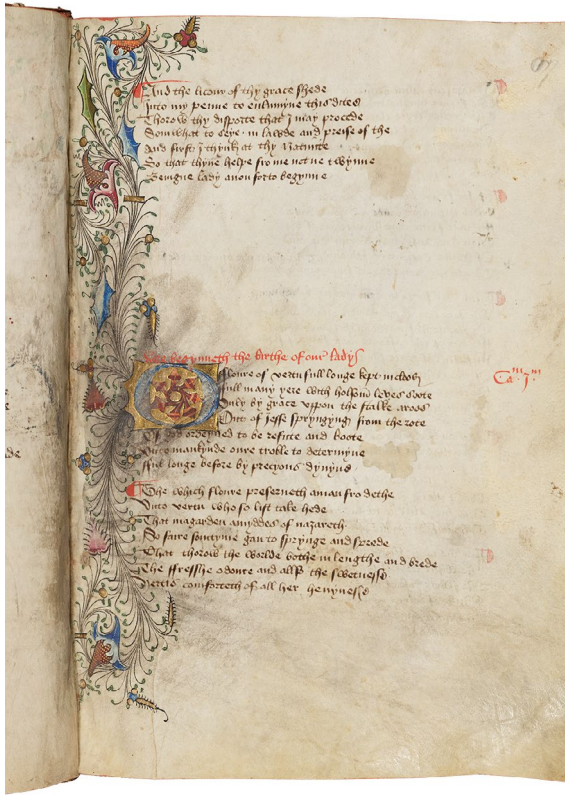 And the licour of thy grace shede
Into my penne to enlumyne this dites
Thorow thy disporte that I may procede
Somwhat to seye in lawde and preise of the
And first I thynk at thy Nativite
So that thyne helpe fro me not ne twynne
Benigne lady anon forto begynne
begynneth the birthe of our lady
floure of vertu full longe kept in cloos
full many yere with holsom leves soote
Only by grace uppon the stalke aroos
Out of Jesse spryngyng from the rote
Of god ordeyned to be resute and boote
Unto mankynde oure troble to determyne
full longe before by precyous dynyng
The which floure preserveth a man fro dethe
Unto vertu who so list take hede
That in a garden amyddes of nazareth
So faire somtyme gan to sprynge and sprede
That thorow the worlde bothe in lengthe and brede
The fresshe odoure and also the swetnesse
comforteth of all her hevynesse
Ca.m j.m